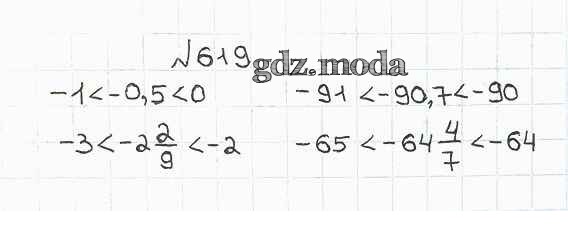 №619
gdz.moda
-1<-0,5<0 -91<-90,7<-90
-3<-2 2/9 <-2 -65<-64 4/7 <-64